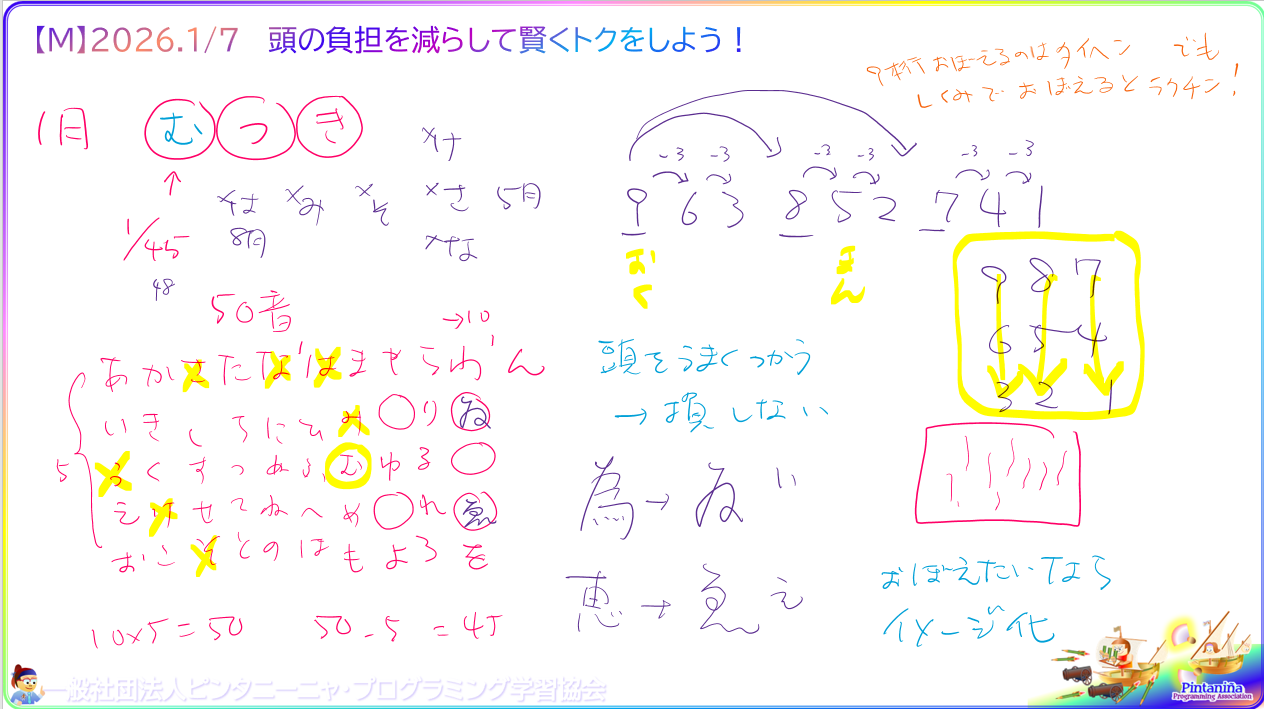 【M】2026.1/7 頭の負担を減らして賢くトクをしよう！
9桁おぼえるのはタイヘン でも
しくみでおぼえるとラクチン！
1月 むつき
×け
×は ×み ×そ ×さ 5月
8月 ×な
1/45
48
50音
→10
あかさたなはまやらわん
いきしちにひみ り ゐ
うくすつぬふむゆる
えけせてねへめ れ ゑ
おこそとのほもよろを
5
10×5=50 50-5=45
-3 -3 -3 -3 -3 -3
9 6 3 8 5 2 7 4 1
おく まん
9 8 7
6 5 4
3 2 1
頭をうまくつかう
→損しない
為→ゐ い
恵→ゑ え
おぼえたいなら
イメージ化
一般社団法人ピンタニーニャ・プログラミング学習協会
Pintaniña
Programming Association